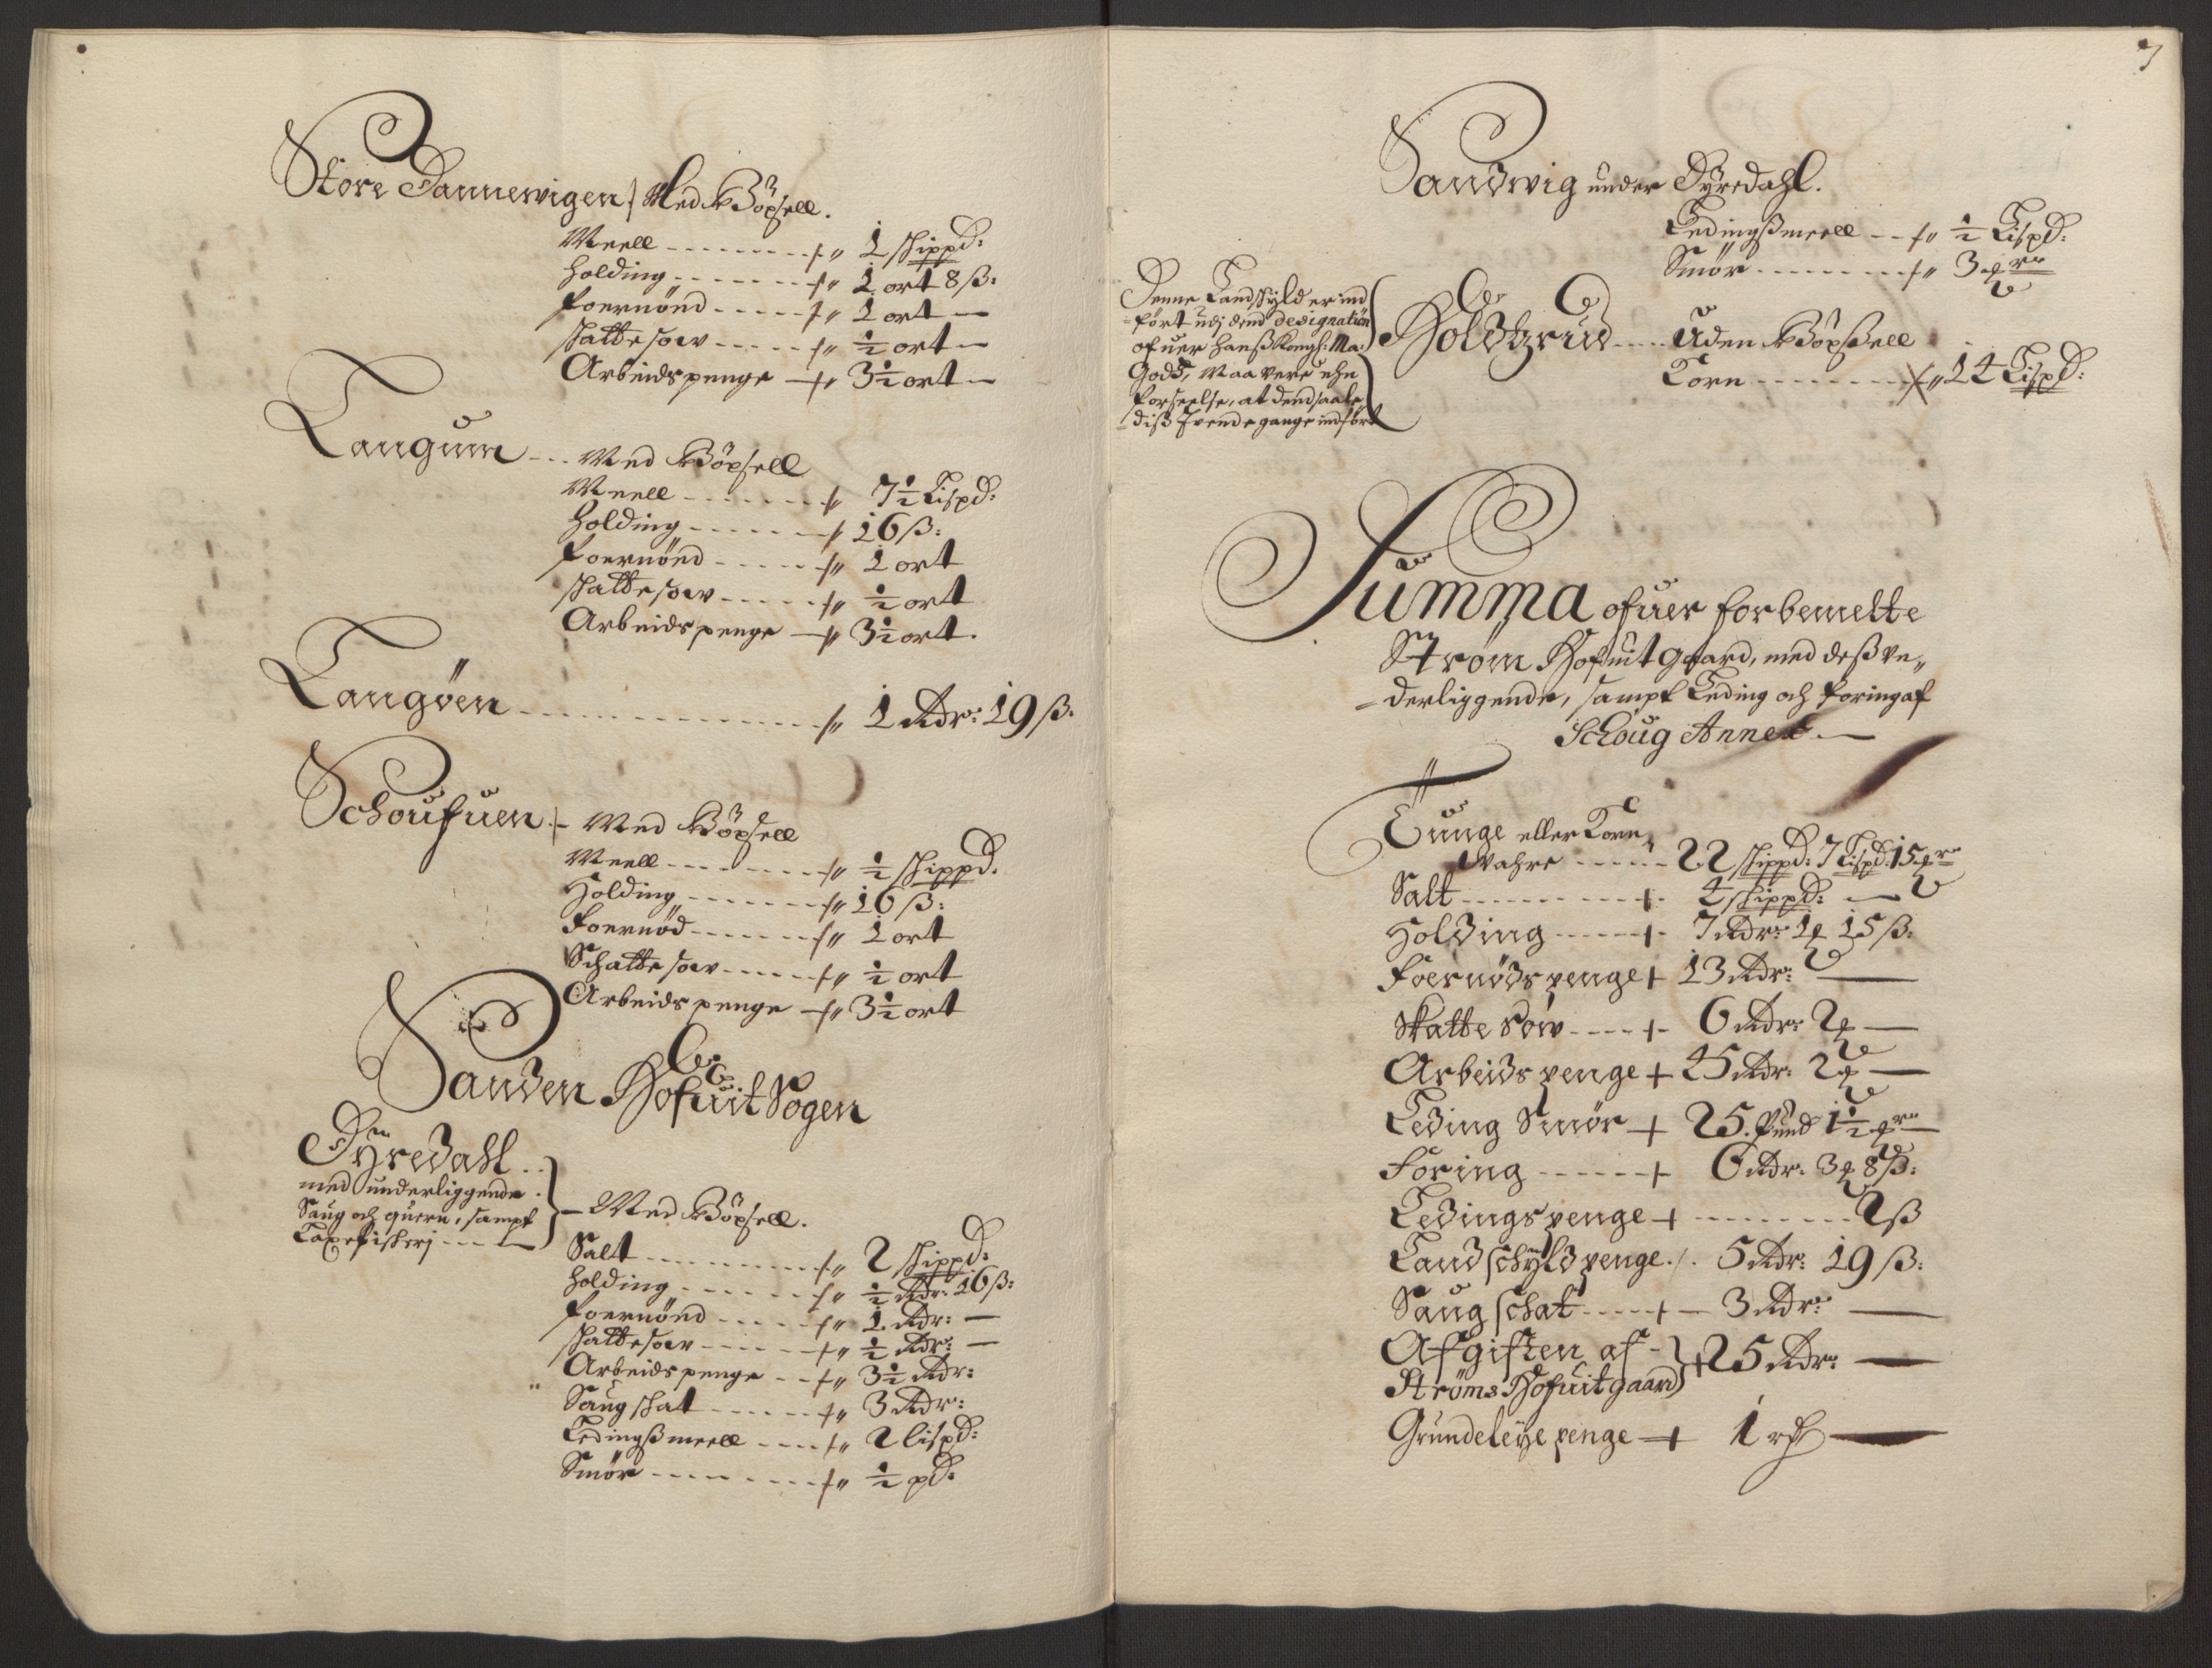 Store Dannewigen / Med Böxsell.
Meell - - - - - - - - + 〃 1 skippd:
holding - - - - - - - + 〃 1 ort 8 ß:
foernöed - - - - - + 〃 1 ort —
skattesoer - - - - - + 〃 ½ ort —
Arbeidspenge —+ 〃 3½ ort —
Langum - - - Med Böxsell
Meell - - - - - - - + 〃 7½ Lispd:
Holding - - - - - - + 16 ß:
foernöed - - - - - + 〃 1 ort
skattesoer - - - - - + 〃 ½ ort
Arbeidspenge —+ 〃 3½ ort.
Langöen - - - - - - - - - - - - - + 〃 1 Rdr: 19 ß.
Schoufuen / - Med Böxsell
Meell - - - - - - - - + 〃 ½ skippd.
Holding - - - - - - - + 〃 16 ß:
Foernöd - - - - - - - + 〃 1 ort
Schattesoer - - - - - + 〃 ½ ort
Arbeidspenge —+ 〃 3½ ort
Sanden Hofuit Sogen
Dÿredahl . .
med underliggende .
Saug och quern, sampt — Med Böxsell.
Laxefiskerj - - - -
Salt - - - - - - - - - + 〃 2 skippd:
holding - - - - - - - + 〃 ½ Rdr: 16 ß:
foernöed - - - - - + 〃 1 Rdr: —
skattesoer - - - - - - + 〃 ½ Rdr: —
Arbeidspenge - - + 〃 3½ Rdr:
Saugskat - - - - - - + 〃 3 Rdr:
Ledingßmeell - - - - + 〃 2 lispd:
Smör - - - - - - - - - + 〃 ½ pd:
7
Sandwig under Dÿredahl.
Ledingßmeell - - + 〃 ½ Lispd:
Smör - - - - - - - - + 〃 3 
Denne Landskÿld er ind
=fört udj dend designation
ofuer hanß Kongl: Ma:
Godß, Maa vere ehn
forseelse, at dend saale
=diß Tvende gange indfört
Holdtzrud - - - - Uden Böxsell
Korn - - - - - - - - - + 〃 14 Lispd:
Summa ofuer forbemelte
Ström Hofuitgaard, med deß ve„
=derliggende, sampt Leding och foring af
Schoug Annex. —
Tunge eller Korn
Wahre - - - - - - 22 skippd: 7 Lispd: 15
Salt - - - - - - - - - - + - 4 skippd: —
Holding - - - - - + - 7 Rdr: 1 15 ß:
Foernödspenge + 13 Rdr: —
Skatte Sow - - - - + - 6 Rdr: 2 —
Arbeidspenge + 45 Rdr: 2 —
Leding Smör + 25. Pund 1½ —
Foring - - - - - - + 6 Rdr: 3 8 ß:
Ledingspenge + - - - - - - - - 2 ß
Landschÿldpenge. / . 5 Rdr: 19 ß:
Saugschat - - - - + - 3 Rdr: —
Afgiften af -
Ströms Hofuitgaard + 25 Rdr: —
Grundeleÿepenge + 1 —